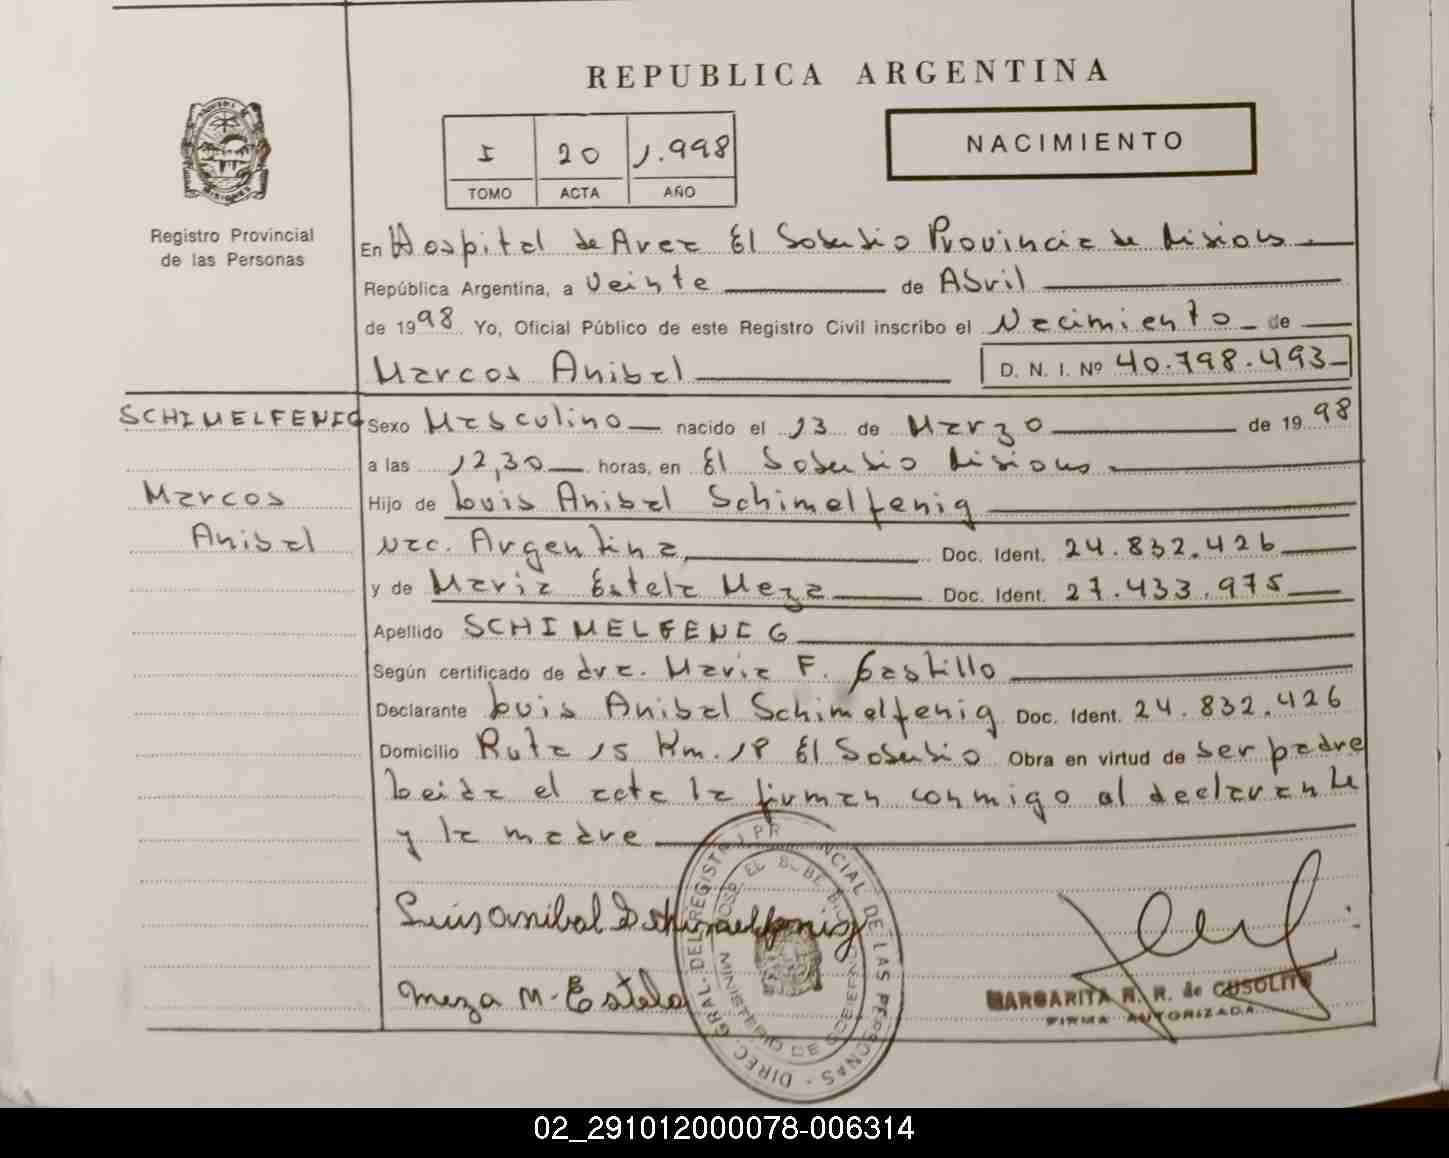 REPUBLICA ARGENTINA
I 20 1.998
TOMO ACTA AÑO
NACIMIENTO
Registro Provincial
de las Personas
En Hospital de Area El Soberbio Provincia de Misiones
República Argentina, a Veinte de Abril
de 1998 Yo, Oficial Público de este Registro Civil inscribo el Nacimiento de
Marcos Anibal D. N. I. Nº 40.798.493
SCHIMELFENIG
Marcos
Anibal
Sexo Masculino nacido el 13 de Marzo de 1998
a las 12,30 horas, en El Soberbio Misiones
Hijo de Luis Anibal Schimelfenig
Nac. Argentina Doc. Ident. 24.832.426
y de Maria Estela Meza Doc. Ident. 27.433.975
Apellido SCHIMELFENIG
Según certificado de dra. Maria F. Castillo
Declarante Luis Anibal Schimelfenig Doc. Ident. 24.832.426
Domicilio Ruta 15 Km. 18 El Soberbio Obra en virtud de ser padre
Leida el acta la firman conmigo el declarante
y la madre
Luis anibal Schimelfenig
Meza M. Estela
DIREC. GRAL. DEL REGISTRO PROVINCIAL DE LAS PERSONAS
MINISTERIO DE GOBIERNO
MARGARITA R. R. de CUSOLITO
FIRMA AUTORIZADA
02_291012000078-006314